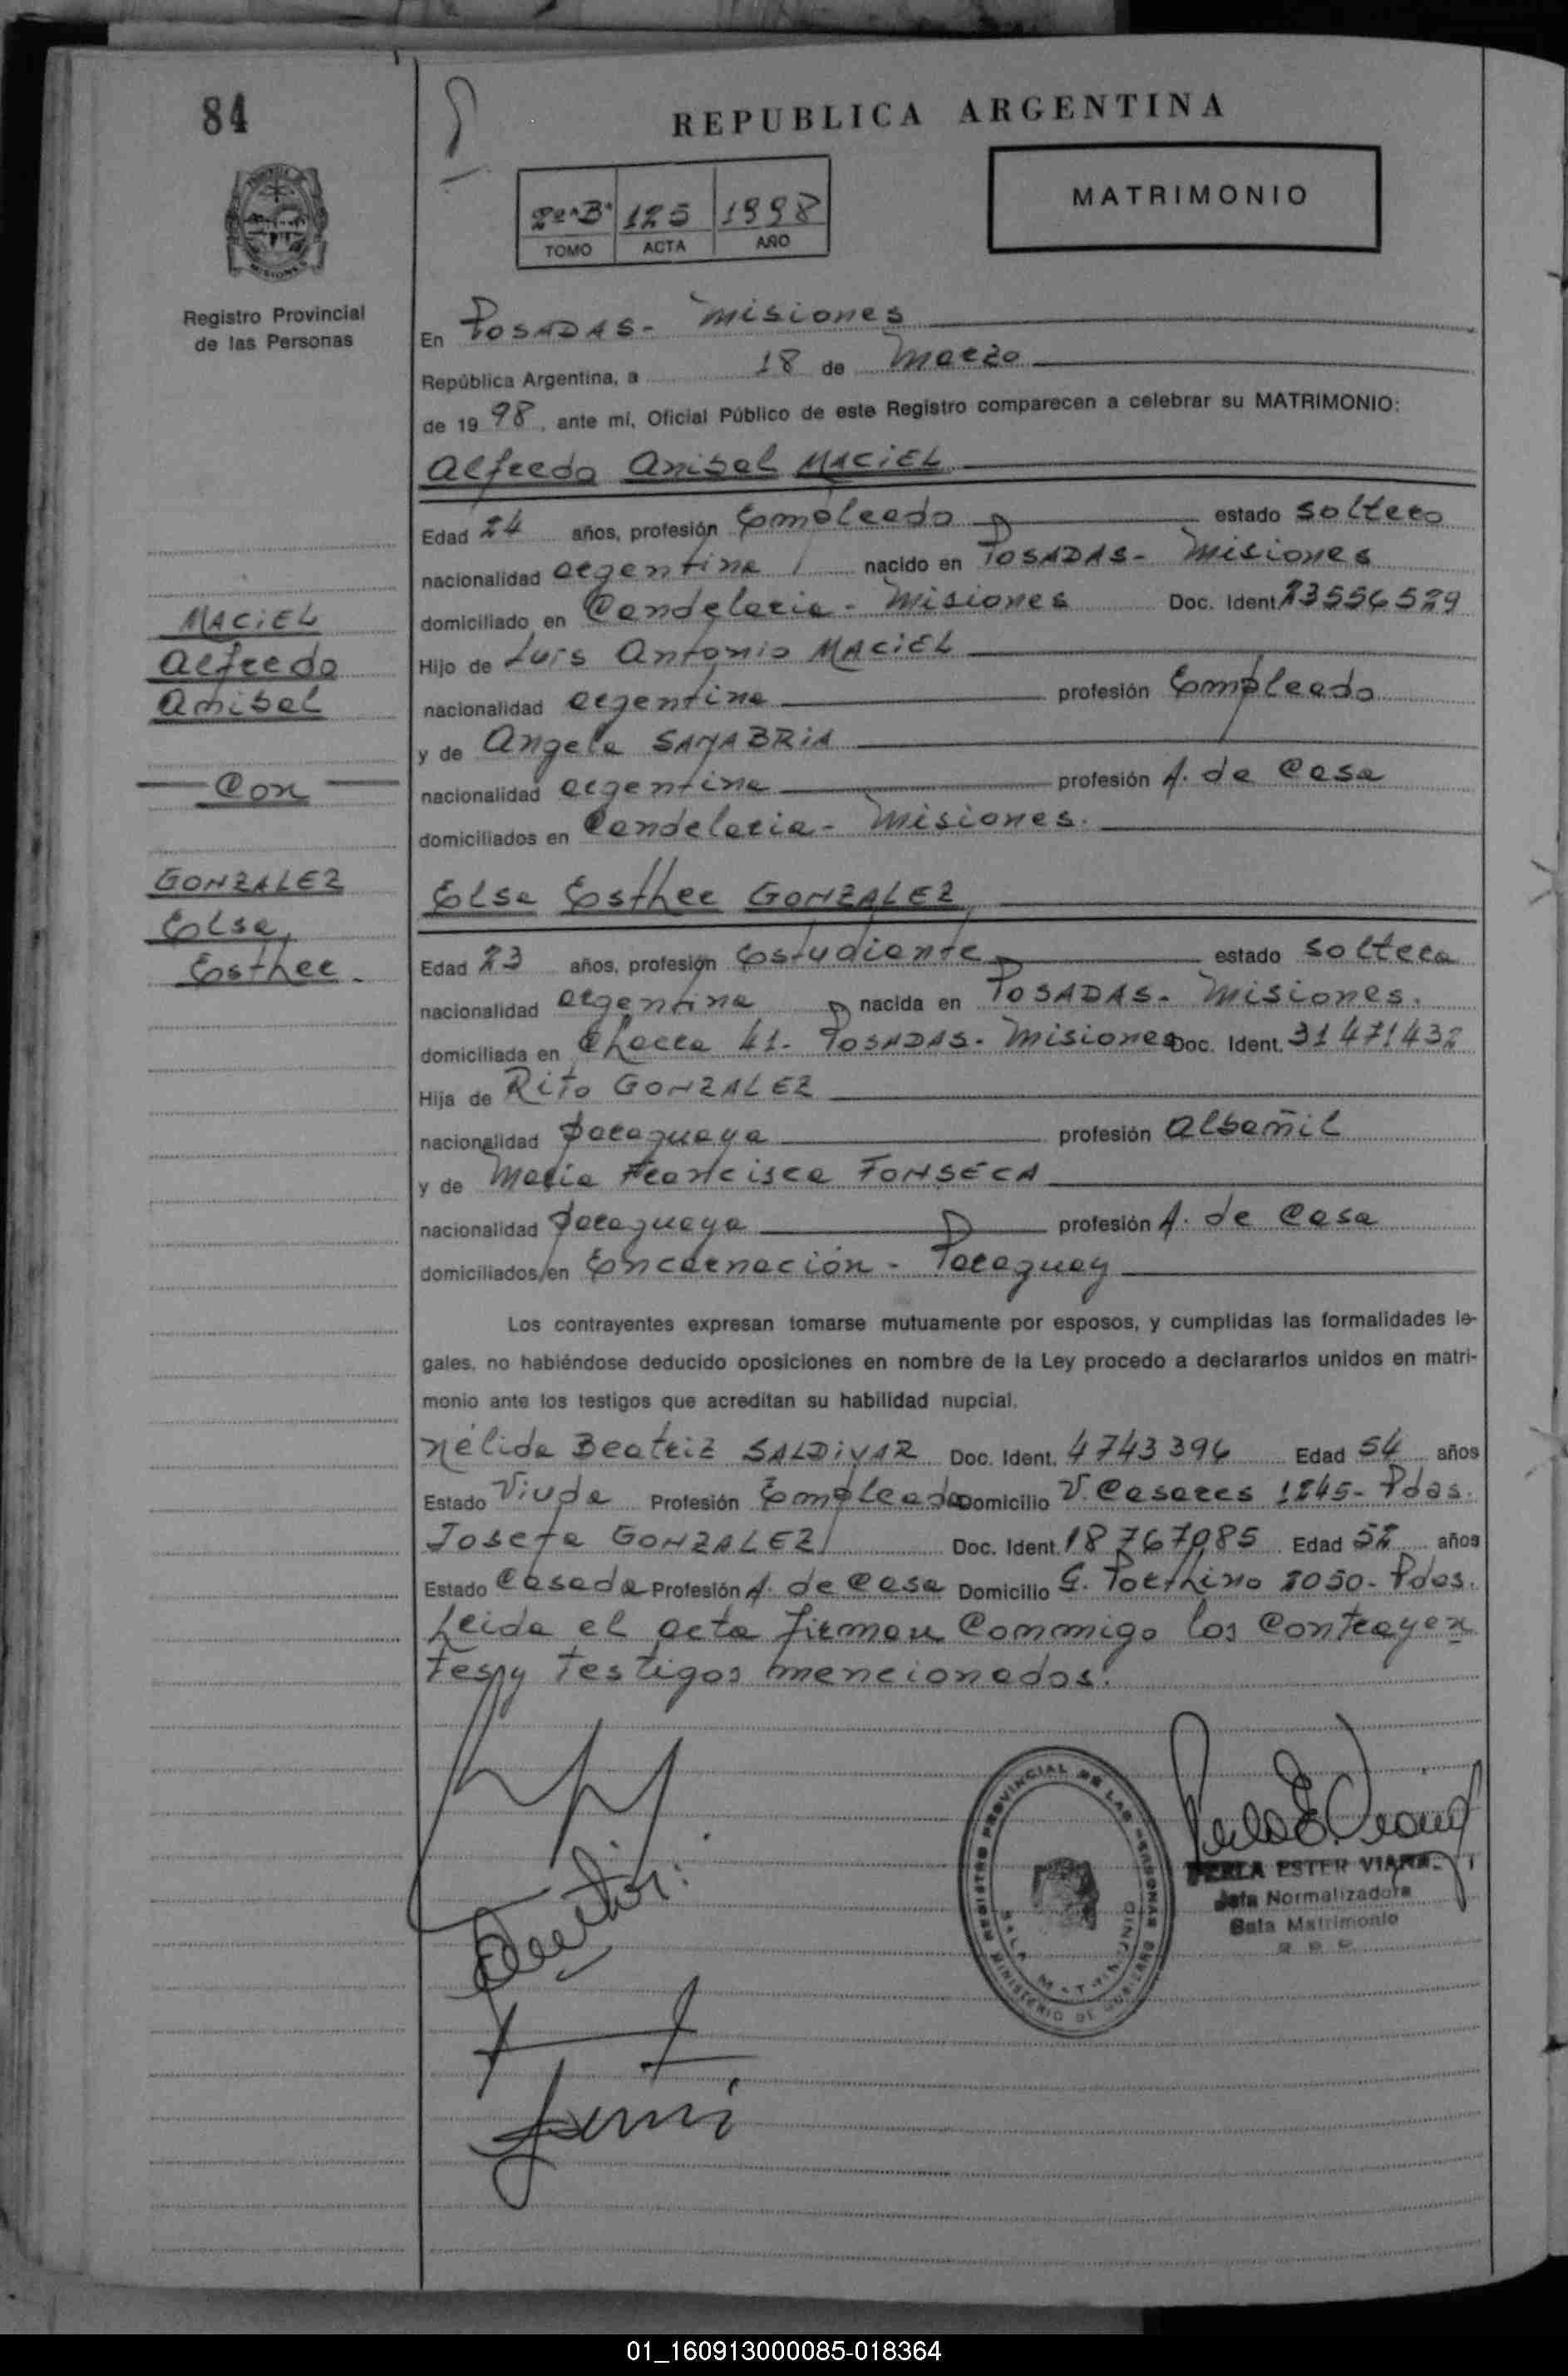 84
REPUBLICA ARGENTINA
2º "B" 125 1998
TOMO ACTA AÑO
MATRIMONIO
MISIONES
Registro Provincial
de las Personas
En POSADAS- Misiones
República Argentina, a 18 de Marzo
de 19 98, ante mí, Oficial Público de este Registro comparecen a celebrar su MATRIMONIO:
Alfredo Anibal MACIEL
Edad 24 años, profesión Empleado estado soltero
nacionalidad argentina nacido en POSADAS- Misiones
domiciliado en Candelaria - Misiones Doc. Ident. 23556529
Hijo de Luis Antonio MACIEL
nacionalidad argentina profesión Empleado
y de Angela SANABRIA
nacionalidad argentina profesión A. de Casa
domiciliados en Candelaria - Misiones.
MACIEL
Alfredo
Anibal
Con
GONZALEZ
Elsa
Esther.
Elsa Esther GONZALEZ
Edad 23 años, profesión Estudiante estado soltera
nacionalidad argentina nacida en POSADAS- Misiones.
domiciliada en Chacra 41- POSADAS- Misiones Doc. Ident. 31471432
Hija de Rito GONZALEZ
nacionalidad paraguaya profesión Albañil
y de Maria Francisca FONSECA
nacionalidad paraguaya profesión A. de Casa
domiciliados en Encarnación - Paraguay
Los contrayentes expresan tomarse mutuamente por esposos, y cumplidas las formalidades le-
gales, no habiéndose deducido oposiciones en nombre de la Ley procedo a declararlos unidos en matri-
monio ante los testigos que acreditan su habilidad nupcial.
Nélida Beatriz SALDIVAR Doc. Ident. 4743396 Edad 54 años
Estado Viuda Profesión Empleada Domicilio V. Casares 1245- Pdas.
Josefa GONZALEZ Doc. Ident. 18767085 Edad 52 años
Estado Casada Profesión A. de Casa Domicilio G. 2050- Pdas.
Leida el acta firman Conmigo los Contrayen
tes y testigos mencionados.
REGISTRO PROVINCIAL DE LAS PERSONAS
SALA MATRIMONIO
MINISTERIO DE GOBIERNO
PERLA ESTER VIANA
Jefa Normalizadora
Sala Matrimonio
01_160913000085-018364